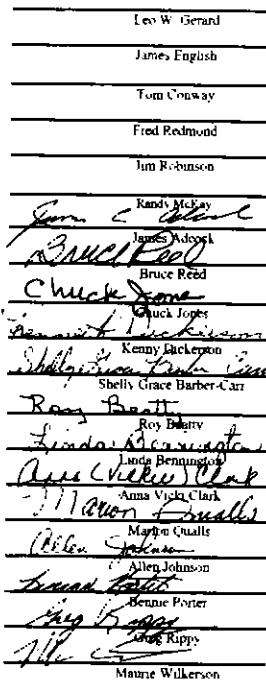 Leo W. Gerard
James English
Tom Conway
Fred Redmond
Jim Robinson
Randy McKay
James Adcock
Bruce Reed
Bruce Reed
Chuck Jones
Chuck Jones
Kenny Dickerson
Shelly Grace Barber-Carr
Roy Beatty
Roy Beatty
Linda Bennington
Linda Bennington
Anna (Vickie) Clark
Anna Vicki Clark
Marion Qualls
Marion Qualls
Allen Johnson
Allen Johnson
Bennie Porter
Greg Ripps
Greg Ripps
Maurie Wilkerson